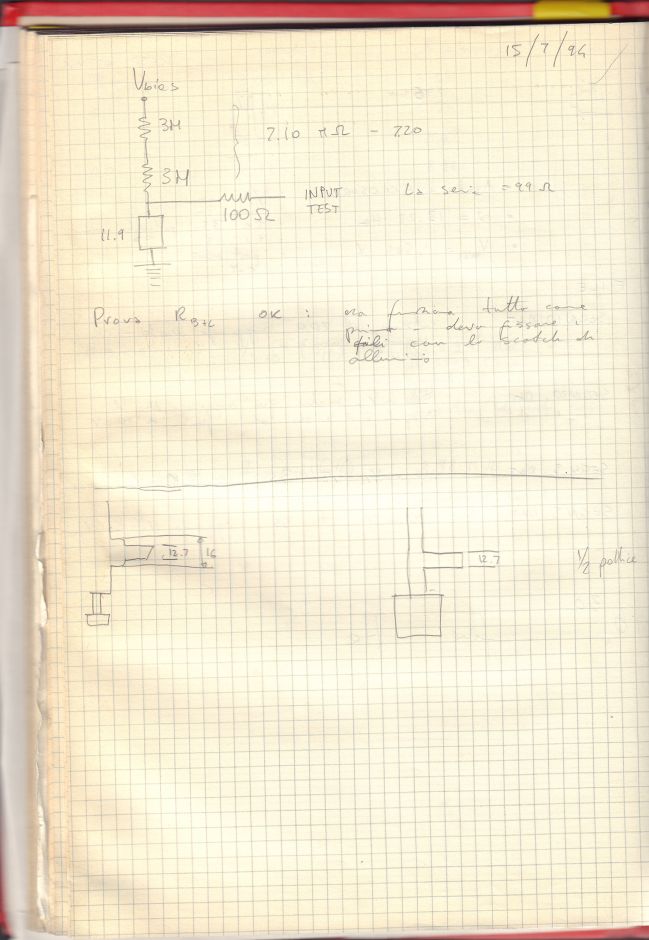 15/7/94
Vbias
3M
7.10 MΩ - 7.20
3M
La serie = 99 Ω
INPUT
TEST
100 Ω
11.9
Prova R OK : ora funziona tutto come
prima - devo fissare i
fili con lo scotch di
alluminio
12.7 16
12.7
1/2 pollice